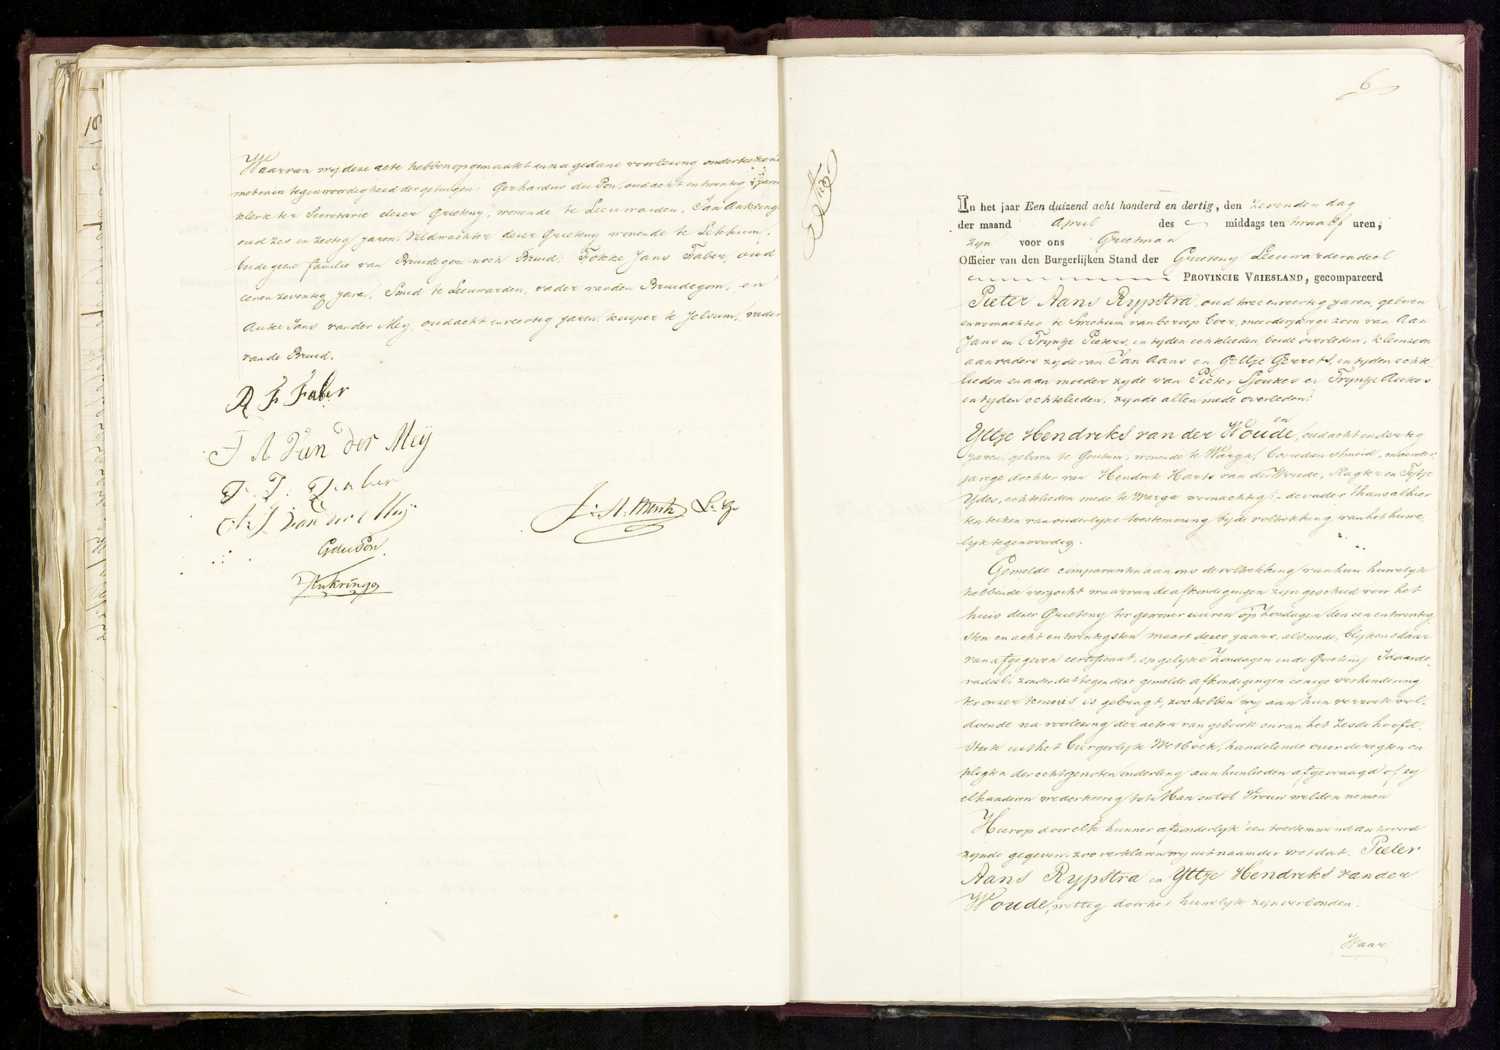 Waarvan wij deze acte hebben opgemaakt en na gedane voorlezing onderteekend
met en in tegenwoordigheid der getuigen: Gerhardus du Pon, oud acht en twintig jaren
klerk ter Secretarie dezer Grieteny, wonende te Leeuwarden, Jan Aukringa
oud zes en zestig jaren, Veldwachter dezer Grieteny wonende te Lekkum,
beide geene familie van Bruidegom noch Bruid; Fokke Jans Faber, oud
zeven zeventig jaren, Smid te Leeuwarden, vader van den Bruidegom, en
Auke Jans van der Mey, oud acht en veertig jaren, kuiper te Jelsum, vader
van de Bruid.
R F Faber
J A Van der Meÿ
F. J. Faber
A: J. van der Meij
G du Pon
J Aukringa
6
In het jaar Een duizend acht honderd en dertig, den zevenden dag
der maand April des middags ten twaalf uren,
zijn voor ons Grietman
Officier van den Burgerlijken Stand der Grieteny Leeuwarderadeel
PROVINCIE VRIESLAND, gecompareerd
Pieter Aans Rypstra, oud twee en veertig jaren, geboren
en woonachtig te Swichum van beroep boer, meerderjarige zoon van Aan
Jans en Tryntje Pieters, in tyden echtelieden beide overleden, kleinzoon
aan vaders zyde van Jan Aans en Geltje Gerrets, in tyden echte-
lieden en aan moeder zyde van Pieter Sjoukes en Tryntje Aukes
in tyden echtelieden, zynde allen mede overleden;
en
Yttje Hendriks van der Woude, oud acht en dertig
jaren, geboren te Goutum, wonende te Warga, boeredienstmeid, meerder-
jarige dochter van Hendrik Harts van der Woude, en Fytje
Ydes, echtelieden mede te Warga woonachtig; de vader thans alhier
ten teeken van ouderlyke toestemming by de voltrekking van het huwe-
lyk tegenwoordig.
Gemelde comparanten aan ons de voltrekking van hun huwelyk
hebbende verzocht waarvan de afkondigingen zyn geschied voor het
huis dezer Grieteny ter gewoner uuren op Zondagen den een en twintig-
sten en acht en twintigsten maart dezes jaars, als mede, blykens daar
van afgegeven certificaat, op gelyke Zondagen in de Grieteny Idaarde-
radeel, zonder dat tegen deze gemelde afkondigingen eenige verhindering
te onzer kennis is gebragt, zoo hebben wy aan hun verzoek vol-
doende na voorlezing der acten van geboorte en van het zesde hoofd-
stuk uit het Burgerlyk Wetboek, handelende over de regten en
pligten der echtgenooten onderling aan hunlieden afgevraagd of zy
elkanderen wederkeerig tot Man en tot Vrouw wilden nemen
Hierop door elk hunner afzonderlyk een toestemmend antwoord
zynde gegeven, zoo verklaren wy uit naam der wet dat Pieter
Aans Rypstra en Yttje Hendriks van der
Woude, wettig door het huwelyk zyn verbonden.
Waar